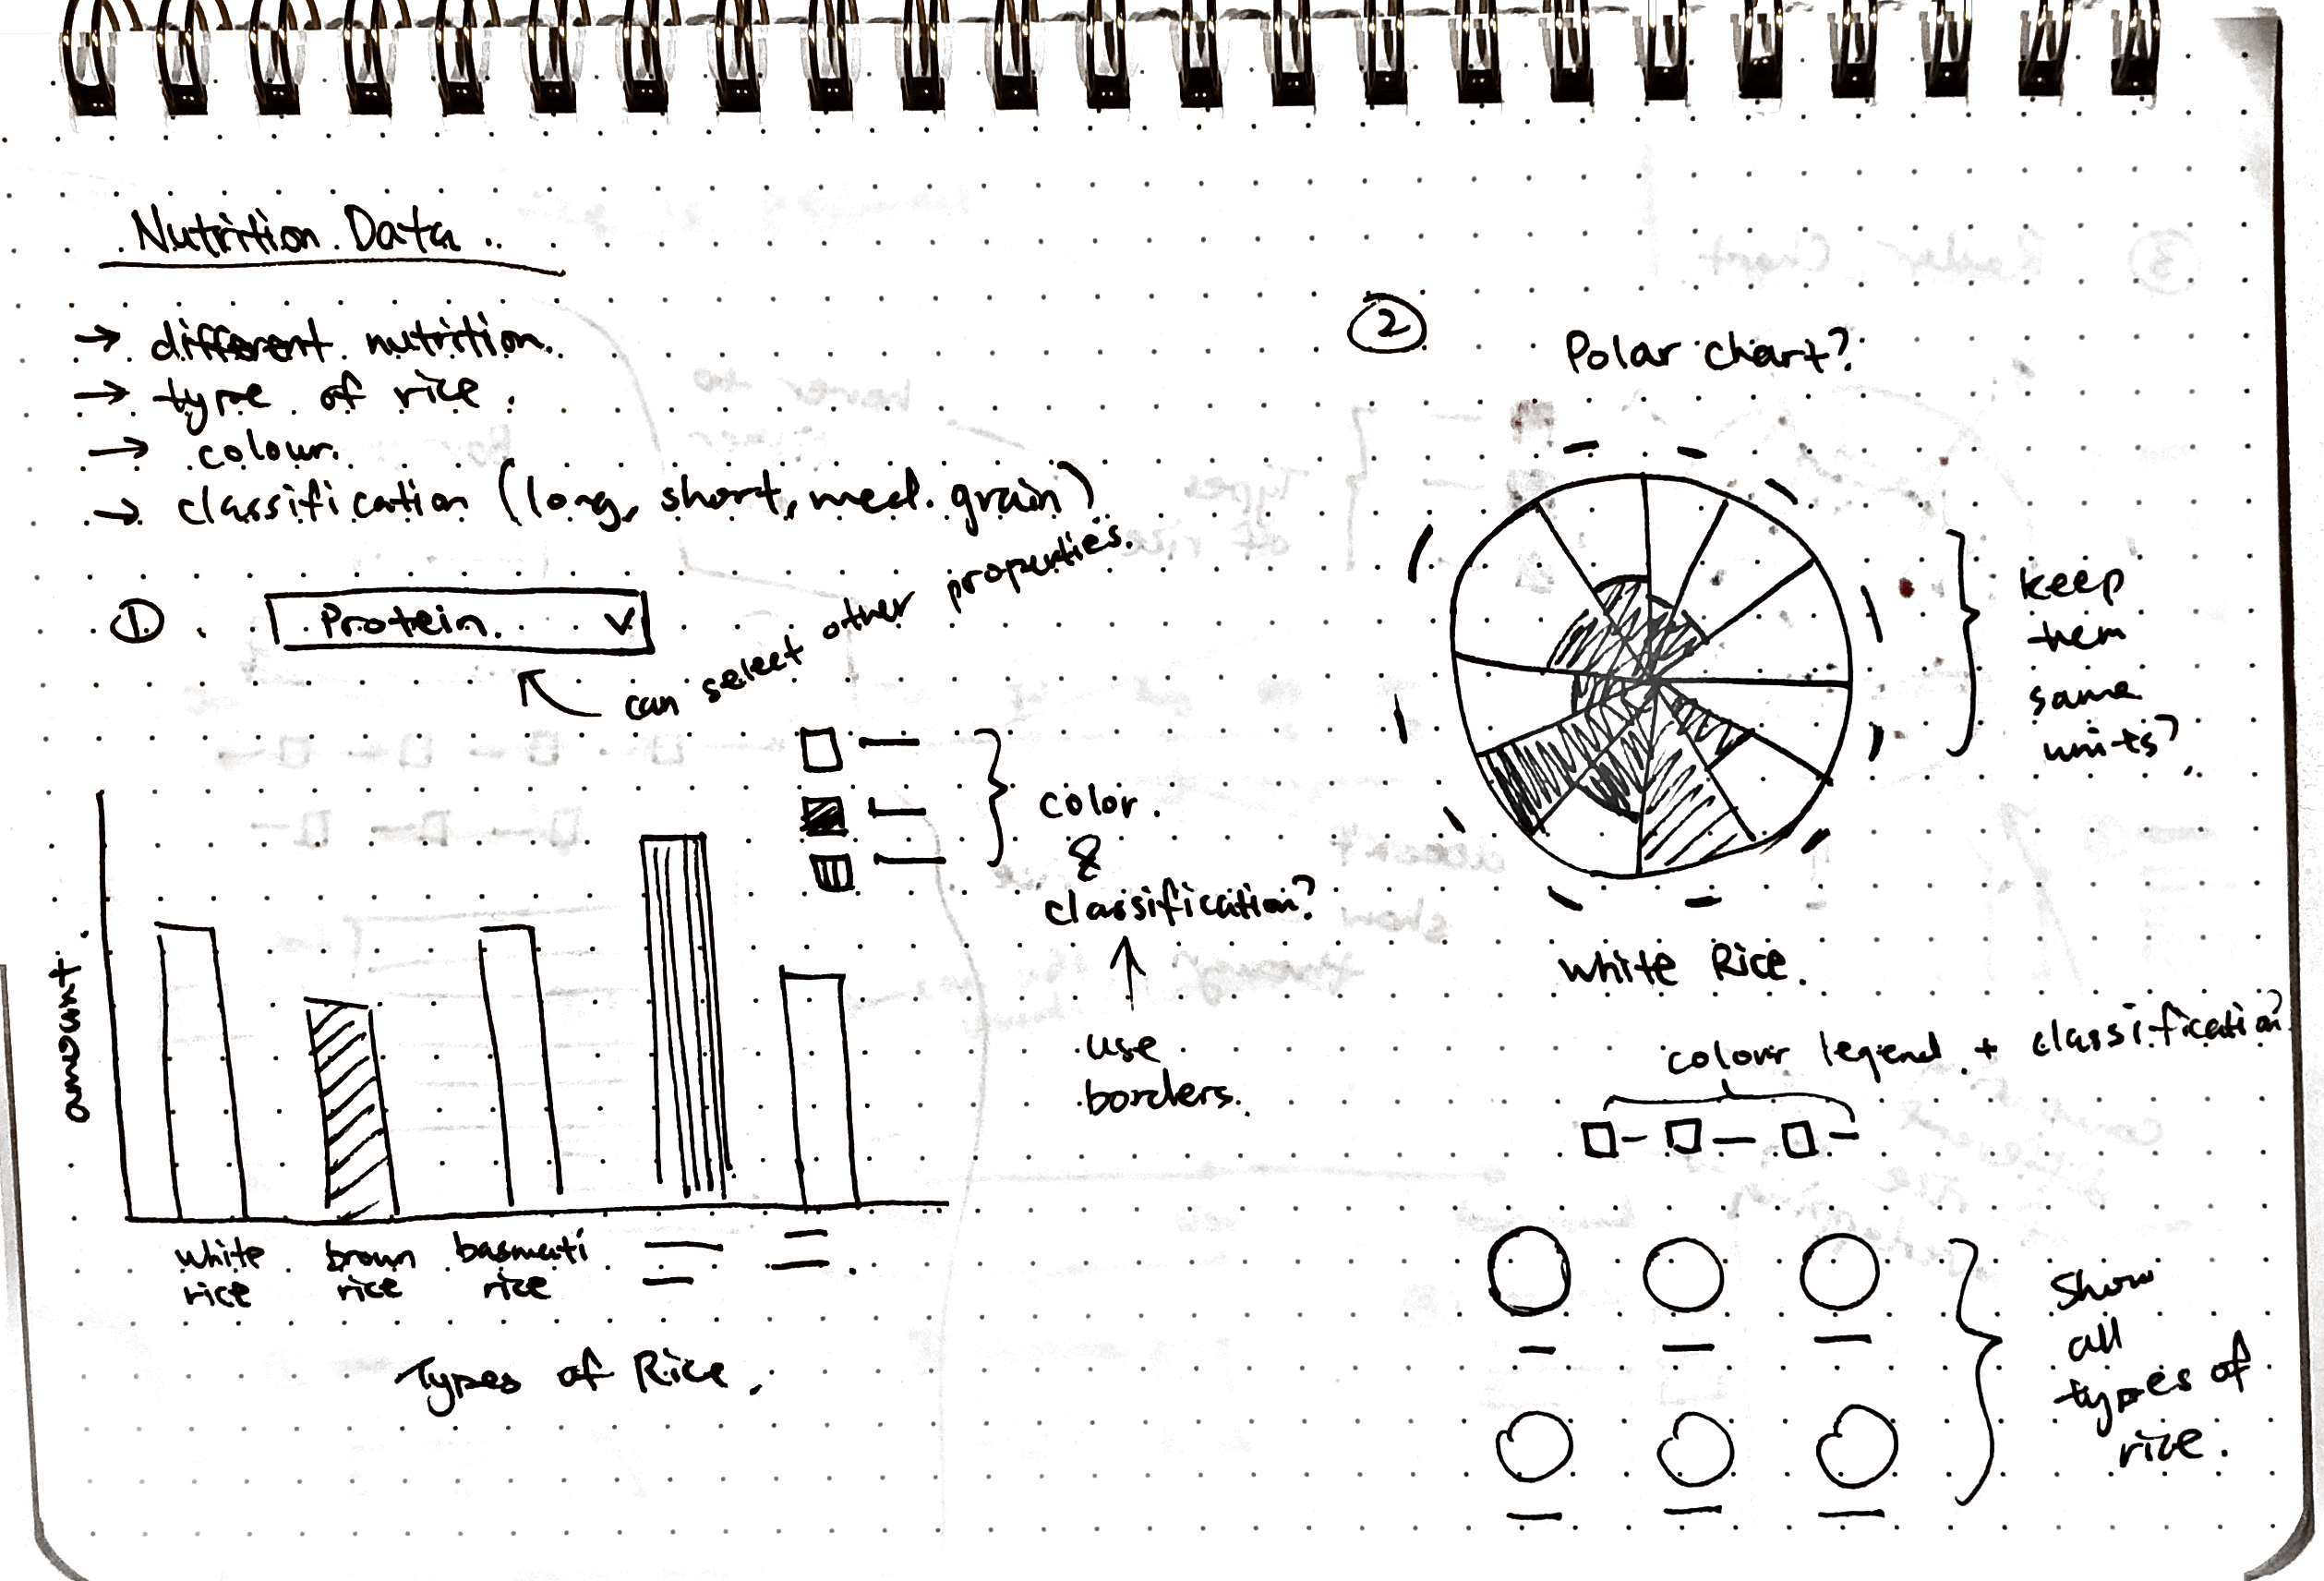 Nutrition Data
→ different nutrition.
→ type of rice.
→ colour.
→ classification (long, short, med. grain)
①
Protein. ∨
can select other properties.
color.
&
classification?
↑
use
borders.
amount.
white
rice
brown
rice
basmati
rice
Types of Rice.
②
Polar chart?
keep
them
same
units?
White Rice.
colour legend + classification?
Show
all
types of
rice.